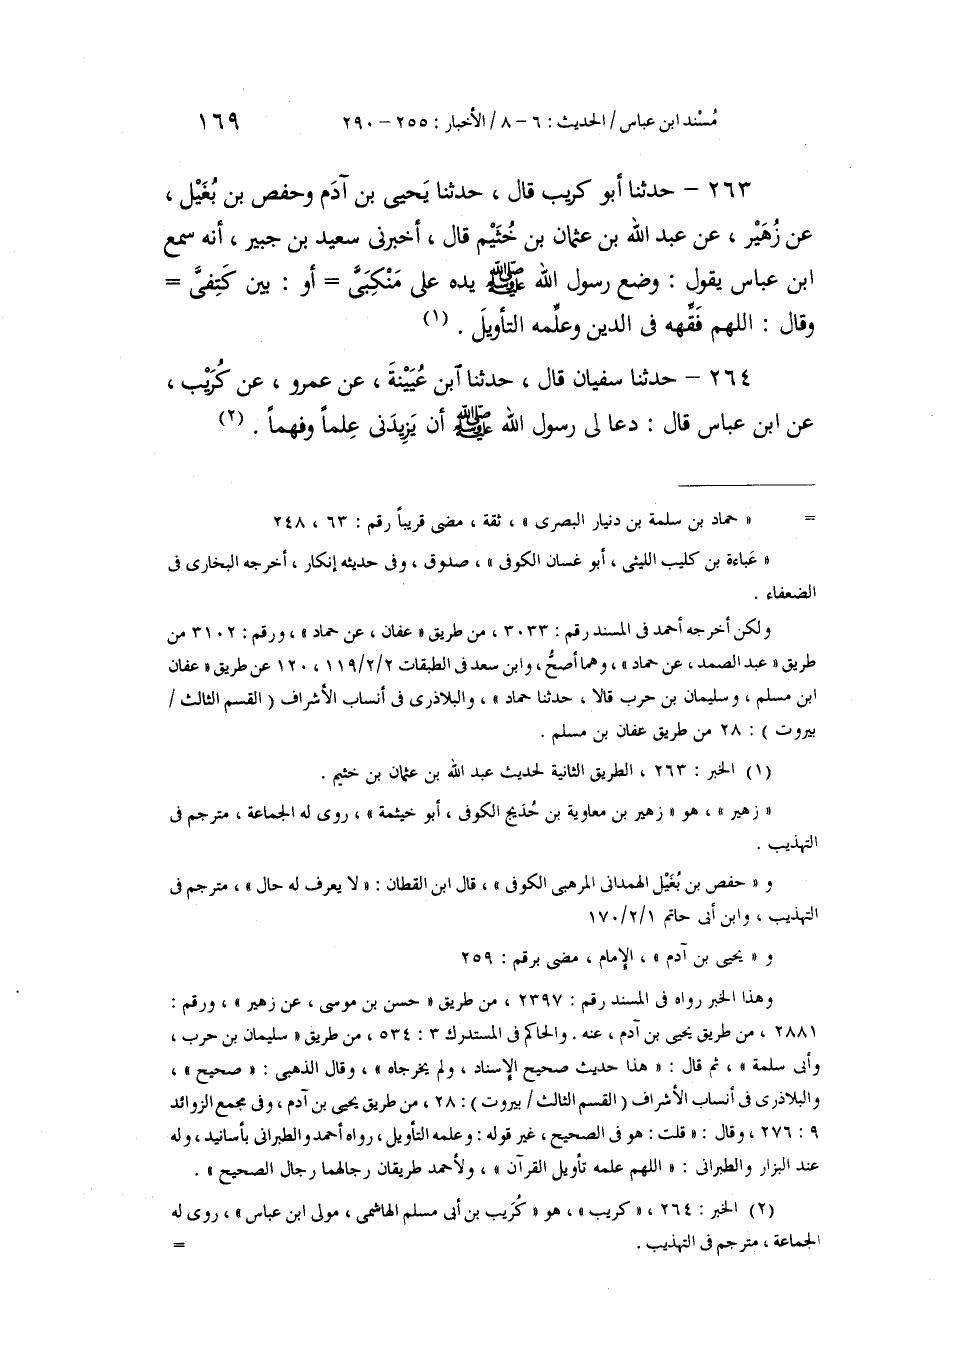 مُسْند ابن عباس / الحديث : ٦ – ٨ / الأخبار : ٢٥٥ – ٢٩٠ ١٦٩
٢٦٣ – حدثنا أبو كريب قال ، حدثنا يَحيى بن آدَم وحفص بن بُغَيْل ،
عن زُهَيْر ، عن عبد الله بن عثمان بن خُثَيْم قال ، أخبرنى سعيد بن جبير ، أنه سمع
ابن عباس يقول : وضع رسول الله ﷺ يده على مَنْكِبَىَّ = أو : بين كَتِفىَّ =
وقال : اللهم فَقِّهه فى الدين وعلِّمه التأويلَ . (١)
٢٦٤ – حدثنا سفيان قال ، حدثنا ٱبن عُيَيْنةَ ، عن عمرو ، عن كُرَيْب ،
عن ابن عباس قال : دعا لى رسول الله ﷺ أن يَزِيدَنى عِلماً وفهماً . (٢)
= « حماد بن سلمة بن دنيار البصرى » ، ثقة ، مضى قريباً رقم : ٦٣ ، ٢٤٨
« عَباءة بن كليب الليثى ، أبو غسان الكوفى » ، صدوق ، وفى حديثه إنكار ، أخرجه البخارى فى
الضعفاء .
ولكن أخرجه أحمد فى المسند رقم : ٣٠٣٣ ، من طريق « عفان ، عن حماد » ، ورقم : ٣١٠٢ من
طريق « عبد الصمد ، عن حماد » ، وهما أصحُّ ، وابن سعد فى الطبقات ١١٩/٢/٢ ، ١٢٠ عن طريق « عفان
ابن مسلم ، وسليمان بن حرب قالا ، حدثنا حماد » ، والبلاذرى فى أنساب الأشراف ( القسم الثالث /
بيروت ) : ٢٨ من طريق عفان بن مسلم .
(١) الخبر : ٢٦٣ ، الطريق الثانية لحديث عبد الله بن عثمان بن خثيم .
« زهير » ، هو « زهير بن معاوية بن حُدَيج الكوفى ، أبو خيثمة » ، روى له الجماعة ، مترجم فى
التهذيب .
و « حفص بن بُغَيْل الهمدانى المرهبى الكوفى » ، قال ابن القطان : « لا يعرف له حال » ، مترجم فى
التهذيب ، وابن أبى حاتم ١٧٠/٢/١
و « يحيى بن آدم » ، الإمام ، مضى برقم : ٢٥٩
وهذا الخبر رواه فى المسند رقم : ٢٣٩٧ ، من طريق « حسن بن موسى ، عن زهير » ، ورقم :
٢٨٨١ ، من طريق يحيى بن آدم ، عنه . والحاكم فى المستدرك ٣ : ٥٣٤ ، من طريق « سليمان بن حرب ،
وأبى سلمة » ، ثم قال : « هذا حديث صحيح الإسناد ، ولم يخرجاه » ، وقال الذهبى : « صحيح » ،
والبلاذرى فى أنساب الأشراف ( القسم الثالث / بيروت ) : ٢٨ ، من طريق يحيى بن آدم ، وفى مجمع الزوائد
٩ : ٢٧٦ ، وقال : « قلت : هو فى الصحيح ، غير قوله : وعلمه التأويل ، رواه أحمد والطبرانى بأسانيد ، وله
عند البزار والطبرانى : « اللهم علمه تأويل القرآن » ، ولأحمد طريقان رجالهما رجال الصحيح » .
(٢) الخبر : ٢٦٤ ، « كريب » ، هو « كُرَيب بن أبى مسلم الهاشمى ، مولى ابن عباس » ، روى له
الجماعة ، مترجم فى التهذيب . =